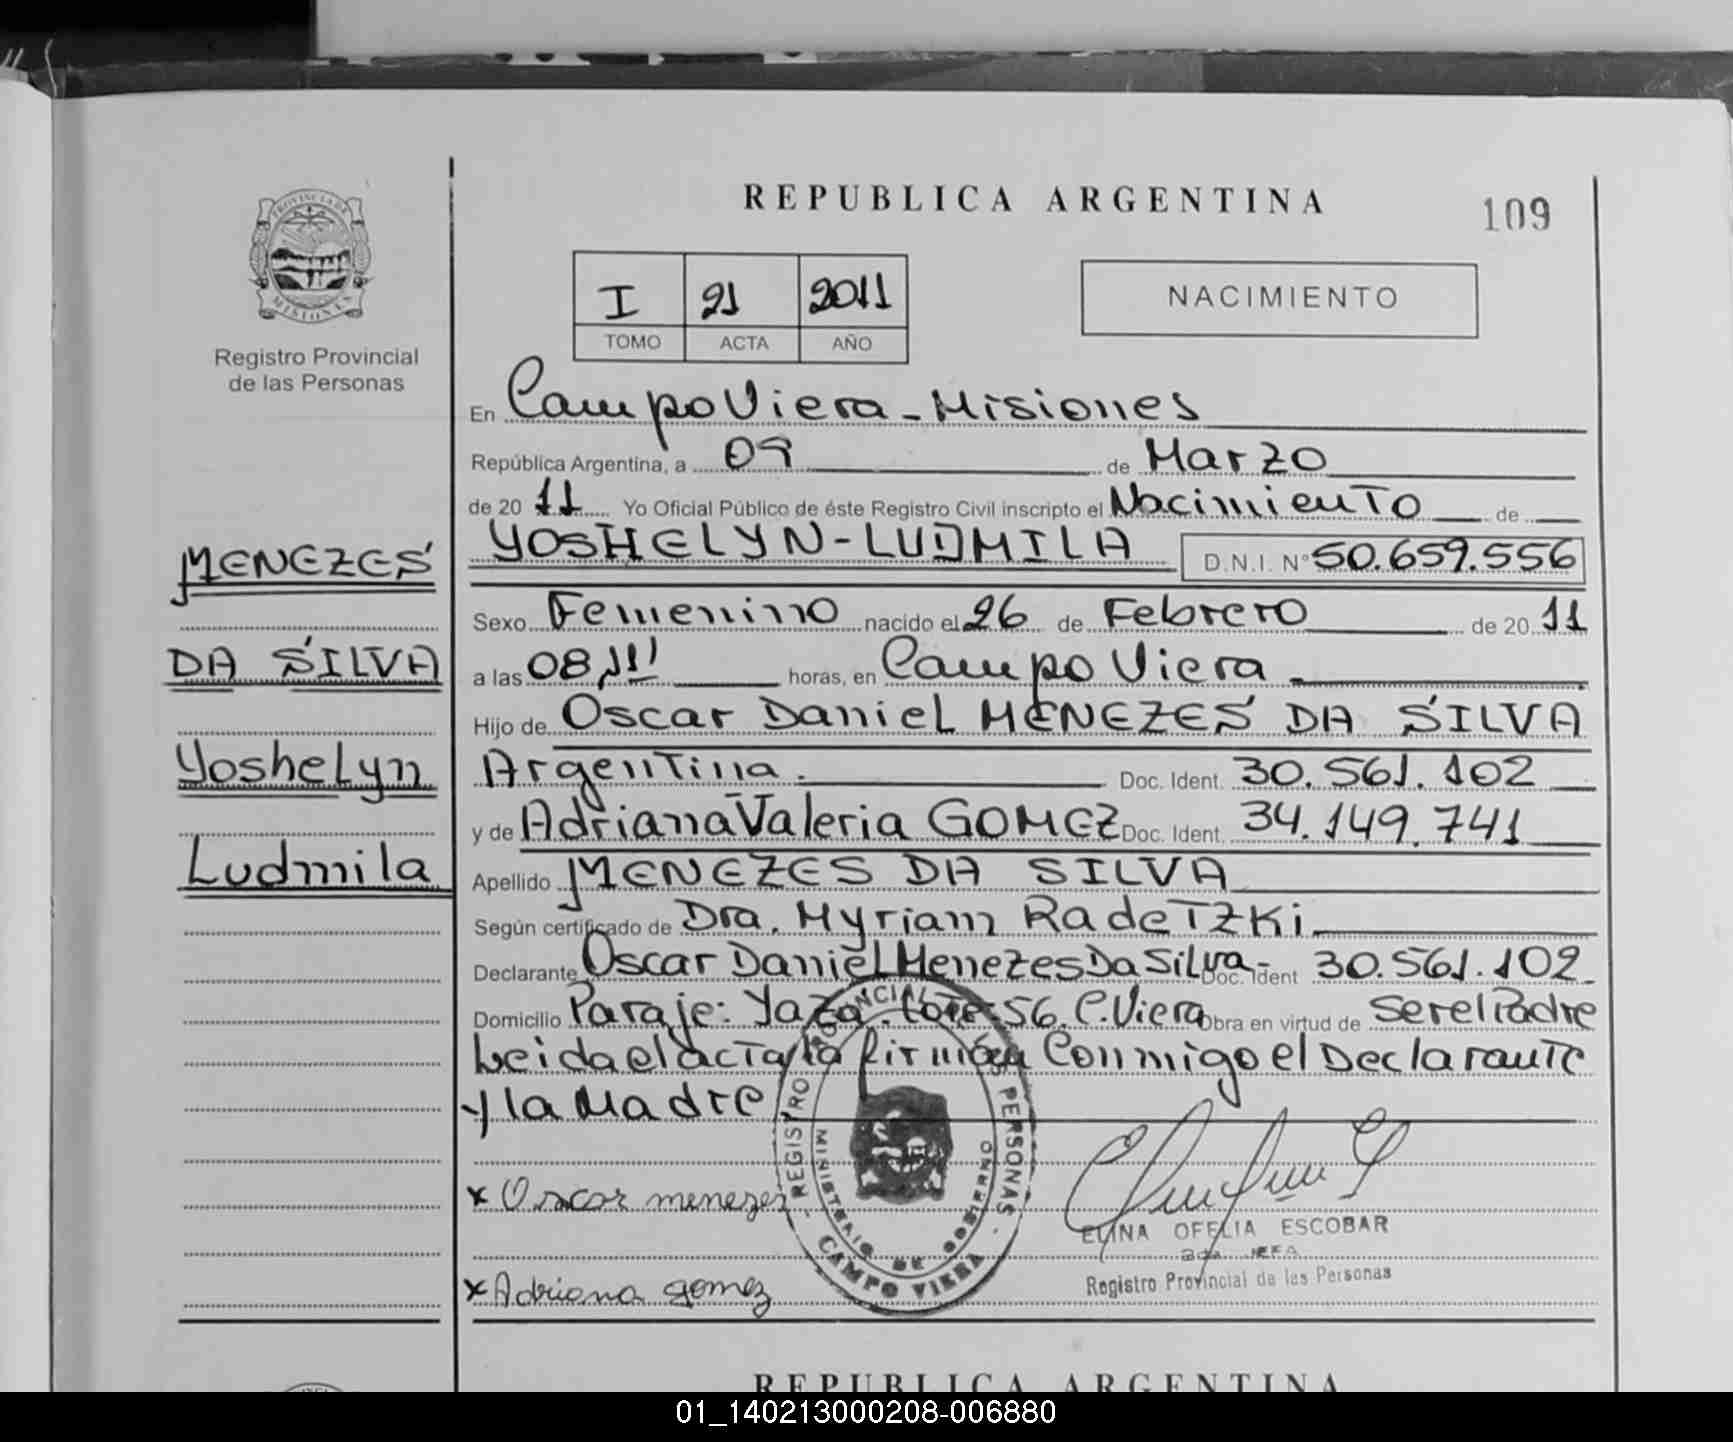 REPUBLICA ARGENTINA
109
PROVINCIA DE
MISIONES
Registro Provincial
de las Personas
I 21 2011
TOMO ACTA AÑO
NACIMIENTO
En Campo Viera - Misiones
República Argentina, a 09 de Marzo
de 20 11 Yo Oficial Público de éste Registro Civil inscripto el Nacimiento de
YOSHELYN-LUDMILA D.N.I. N° 50.659.556
MENEZES
DA SILVA
Yoshelyn
Ludmila
Sexo Femenino nacido el 26 de Febrero de 20 11
a las 08 horas, en Campo Viera
Hijo de Oscar Daniel MENEZES DA SILVA
Argentina. Doc. Ident. 30.561.102
y de Adriana Valeria GOMEZ Doc. Ident. 34.149.741
Apellido MENEZES DA SILVA
Según certificado de Dra. Myriam RadeTZKi
Declarante Oscar Daniel Menezes Da Silva- Doc. Ident 30.561.102
Domicilio Paraje: Yazá. Lote-56. C.Viera Obra en virtud de Ser el Padre
Leida el acta la firman Conmigo el Declarante
y la Madre
x Oscar menezes
x Adriana gomez
REGISTRO PROVINCIAL DE LAS PERSONAS
MINISTERIO DE GOBIERNO
CAMPO VIERA
ELINA OFELIA ESCOBAR
2da JEFA
Registro Provincial de las Personas
REPUBLICA ARGENTINA
01_140213000208-006880